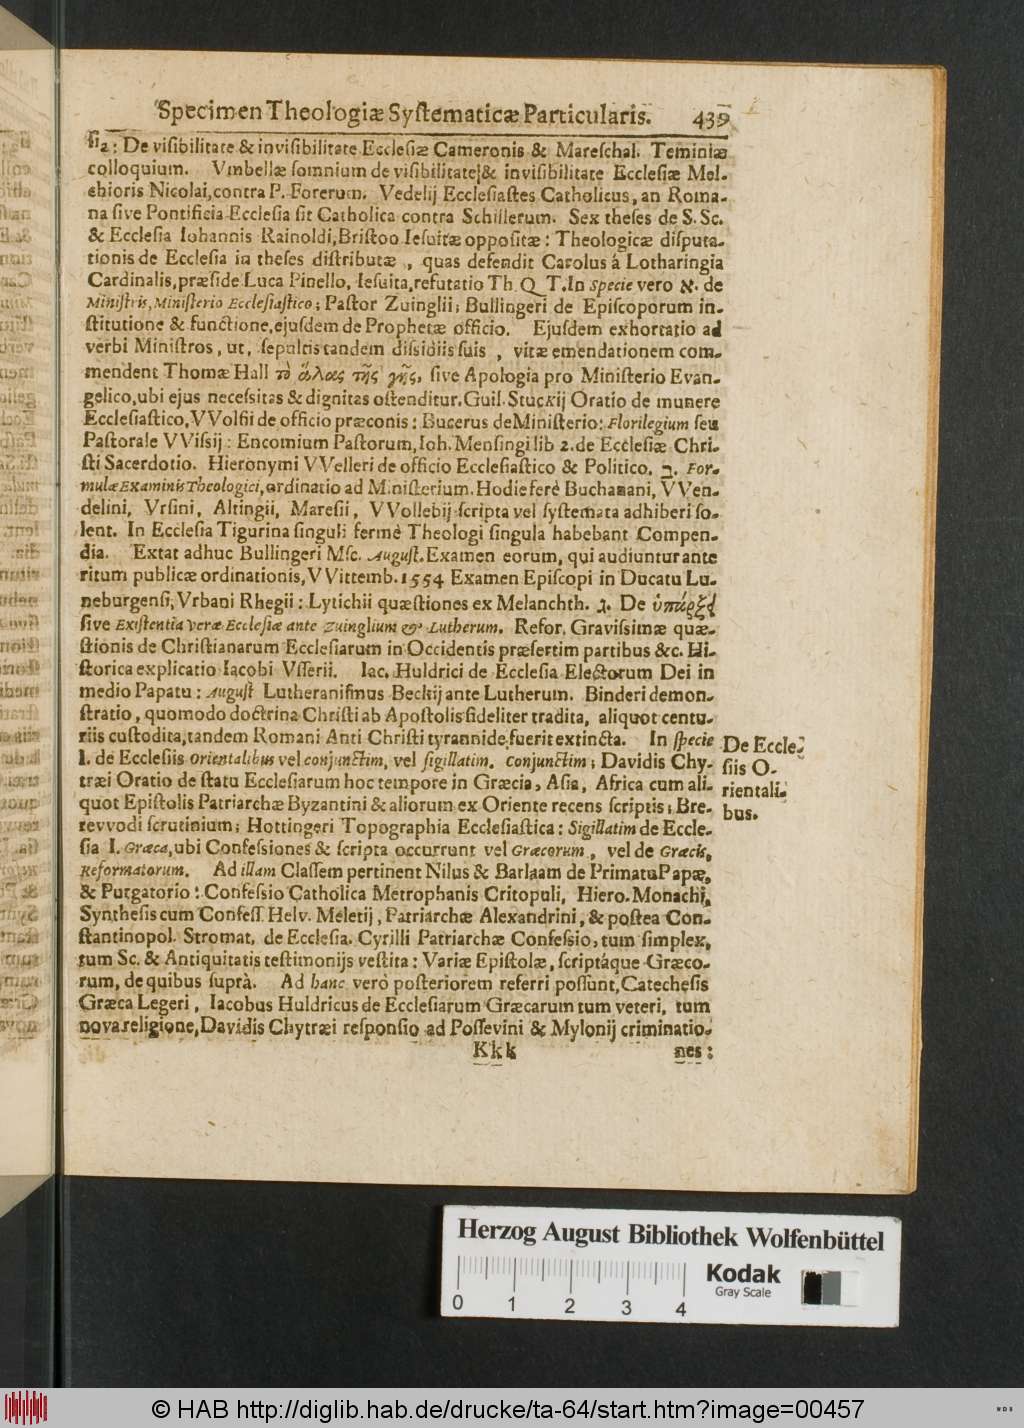 Specimen Theologiæ Syſtematicæ Particularis. 439
ſia: De viſibilitate & inviſibilitate Eccleſiæ Cameronis & Mareſchal. Teminiæ
colloquium. Vmbellæ ſomnium de viſibilitate & inviſibilitate Eccleſiæ Mel-
chioris Nicolai, contra P. Forerum. Vedelij Eccleſiaſtes Catholicus, an Roma-
na ſive Pontificia Eccleſia ſit Catholica contra Schillerum. Sex theſes de S. Sc.
& Eccleſia Iohannis Rainoldi, Briſtoo Ieſuitæ oppoſitæ: Theologicæ diſputa-
tionis de Eccleſia in theſes diſtributæ, quas defendit Carolus á Lotharingia
Cardinalis, præſide Luca Pinello, Ieſuita, refutatio Th. Q T. In ſpecie vero א. de
Miniſtris, Miniſterio Eccleſiaſtico; Paſtor Zuinglii; Bullingeri de Epiſcoporum in-
ſtitutione & functione, ejuſdem de Prophetæ officio. Ejuſdem exhortatio ad
verbi Miniſtros, ut, ſepultis tandem diſsidiis ſuis, vitæ emendationem com-
mendent Thomæ Hall τὸ ἅλας τῆς γῆς, ſive Apologia pro Miniſterio Evan-
gelico, ubi ejus neceſsitas & dignitas oſtenditur. Guil. Stuckij Oratio de munere
Eccleſiaſtico, VVolfii de officio præconis: Bucerus de Miniſterio: Florilegium ſeu
Paſtorale VViſsij: Encomium Paſtorum, Ioh. Menſingi lib 2. de Eccleſiæ Chri-
ſti Sacerdotio. Hieronymi VVelleri de officio Eccleſiaſtico & Politico. ב. For-
mulæ Examinis Theologici, ordinatio ad Miniſterium. Hodie ferè Buchanani, VVen-
delini, Vrſini, Altingii, Mareſii, VVollebij ſcripta vel ſyſtemata adhiberi ſo-
lent. In Eccleſia Tigurina ſinguli fermè Theologi ſingula habebant Compen-
dia. Extat adhuc Bullingeri Mſc. Auguſt. Examen eorum, qui audiuntur ante
ritum publicæ ordinationis, VVittemb. 1554 Examen Epiſcopi in Ducatu Lu-
neburgenſi, Vrbani Rhegii: Lytichii quæſtiones ex Melanchth. ג. De ὑπάρξει
ſive Exiſtentia veræ Eccleſiæ ante Zuinglium & Lutherum. Refor. Graviſsimæ quæ-
ſtionis de Chriſtianarum Eccleſiarum in Occidentis præſertim partibus &c. Hi-
ſtorica explicatio Iacobi Vſſerii. Iac. Huldrici de Eccleſia Electorum Dei in
medio Papatu: Auguſt Lutheraniſmus Beckij ante Lutherum. Binderi demon-
ſtratio, quomodo doctrina Chriſti ab Apoſtolis fideliter tradita, aliquot centu-
riis cuſtodita, tandem Romani Anti Chriſti tyrannide fuerit extincta. In ſpecie
I. de Eccleſiis Orientalibus vel conjunctim, vel ſigillatim. Conjunctim; Davidis Chy-
træi Oratio de ſtatu Eccleſiarum hoc tempore in Græcia, Aſia, Africa cum ali-
quot Epiſtolis Patriarchæ Byzantini & aliorum ex Oriente recens ſcriptis; Bre-
revvodi ſcrutinium; Hottingeri Topographia Eccleſiaſtica: Sigillatim de Eccle-
ſia I. Græca, ubi Confeſsiones & ſcripta occurrunt vel Græcorum, vel de Græcis,
Reformatorum. Ad illam Claſſem pertinent Nilus & Barlaam de Primatu Papæ,
& Purgatorio: Confeſsio Catholica Metrophanis Critopuli, Hiero. Monachi,
Syntheſis cum Confeſſ. Helv. Meletij, Patriarchæ Alexandrini, & poſtea Con-
ſtantinopol. Stromat. de Eccleſia. Cyrilli Patriarchæ Confeſsio, tum ſimplex,
tum Sc. & Antiquitatis teſtimonijs veſtita: Variæ Epiſtolæ, ſcriptáque Græco-
rum, de quibus ſuprà. Ad hanc verò poſteriorem referri poſſunt, Catecheſis
Græca Legeri, Iacobus Huldricus de Eccleſiarum Græcarum tum veteri, tum
nova religione, Davidis Chytræi reſponſio ad Poſſevini & Mylonij criminatio-
Kkk nes:
De Eccle-
ſiis O-
rientali-
bus.
Herzog August Bibliothek Wolfenbüttel
Kodak
Gray Scale
0 1 2 3 4
© HAB http://diglib.hab.de/drucke/ta-64/start.htm?image=00457